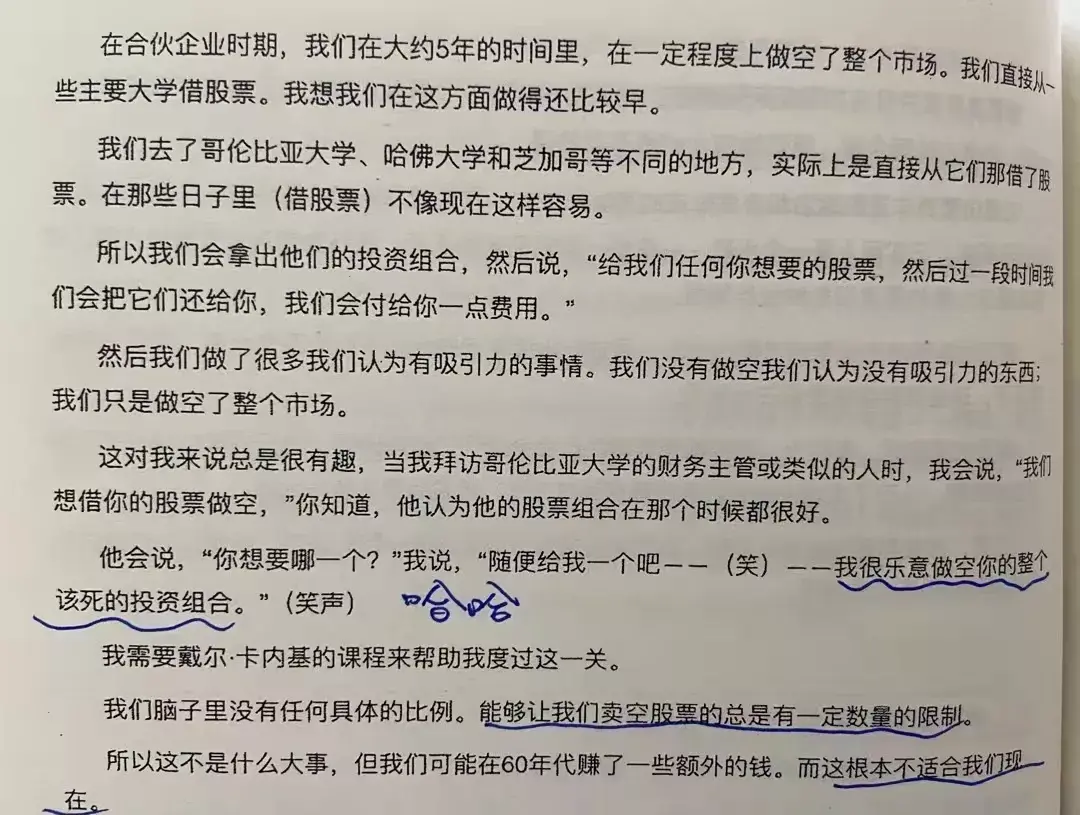 在合伙企业时期，我们在大约5年的时间里，在一定程度上做空了整个市场。我们直接从一
些主要大学借股票。我想我们在这方面做得还比较早。
我们去了哥伦比亚大学、哈佛大学和芝加哥等不同的地方，实际上是直接从它们那借了股
票。在那些日子里（借股票）不像现在这样容易。
所以我们会拿出他们的投资组合，然后说，“给我们任何你想要的股票，然后过一段时间我
们会把它们还给你，我们会付给你一点费用。”
然后我们做了很多我们认为有吸引力的事情。我们没有做空我们认为没有吸引力的东西；
我们只是做空了整个市场。
这对我来说总是很有趣，当我拜访哥伦比亚大学的财务主管或类似的人时，我会说，“我们
想借你的股票做空，”你知道，他认为他的股票组合在那个时候都很好。
他会说，“你想要哪一个？”我说，“随便给我一个吧——（笑）——我很乐意做空你的整个
该死的投资组合。”（笑声） 哈哈
我需要戴尔·卡内基的课程来帮助我度过这一关。
我们脑子里没有任何具体的比例。能够让我们卖空股票的总是有一定数量的限制。
所以这不是什么大事，但我们可能在60年代赚了一些额外的钱。而这根本不适合我们现
在。